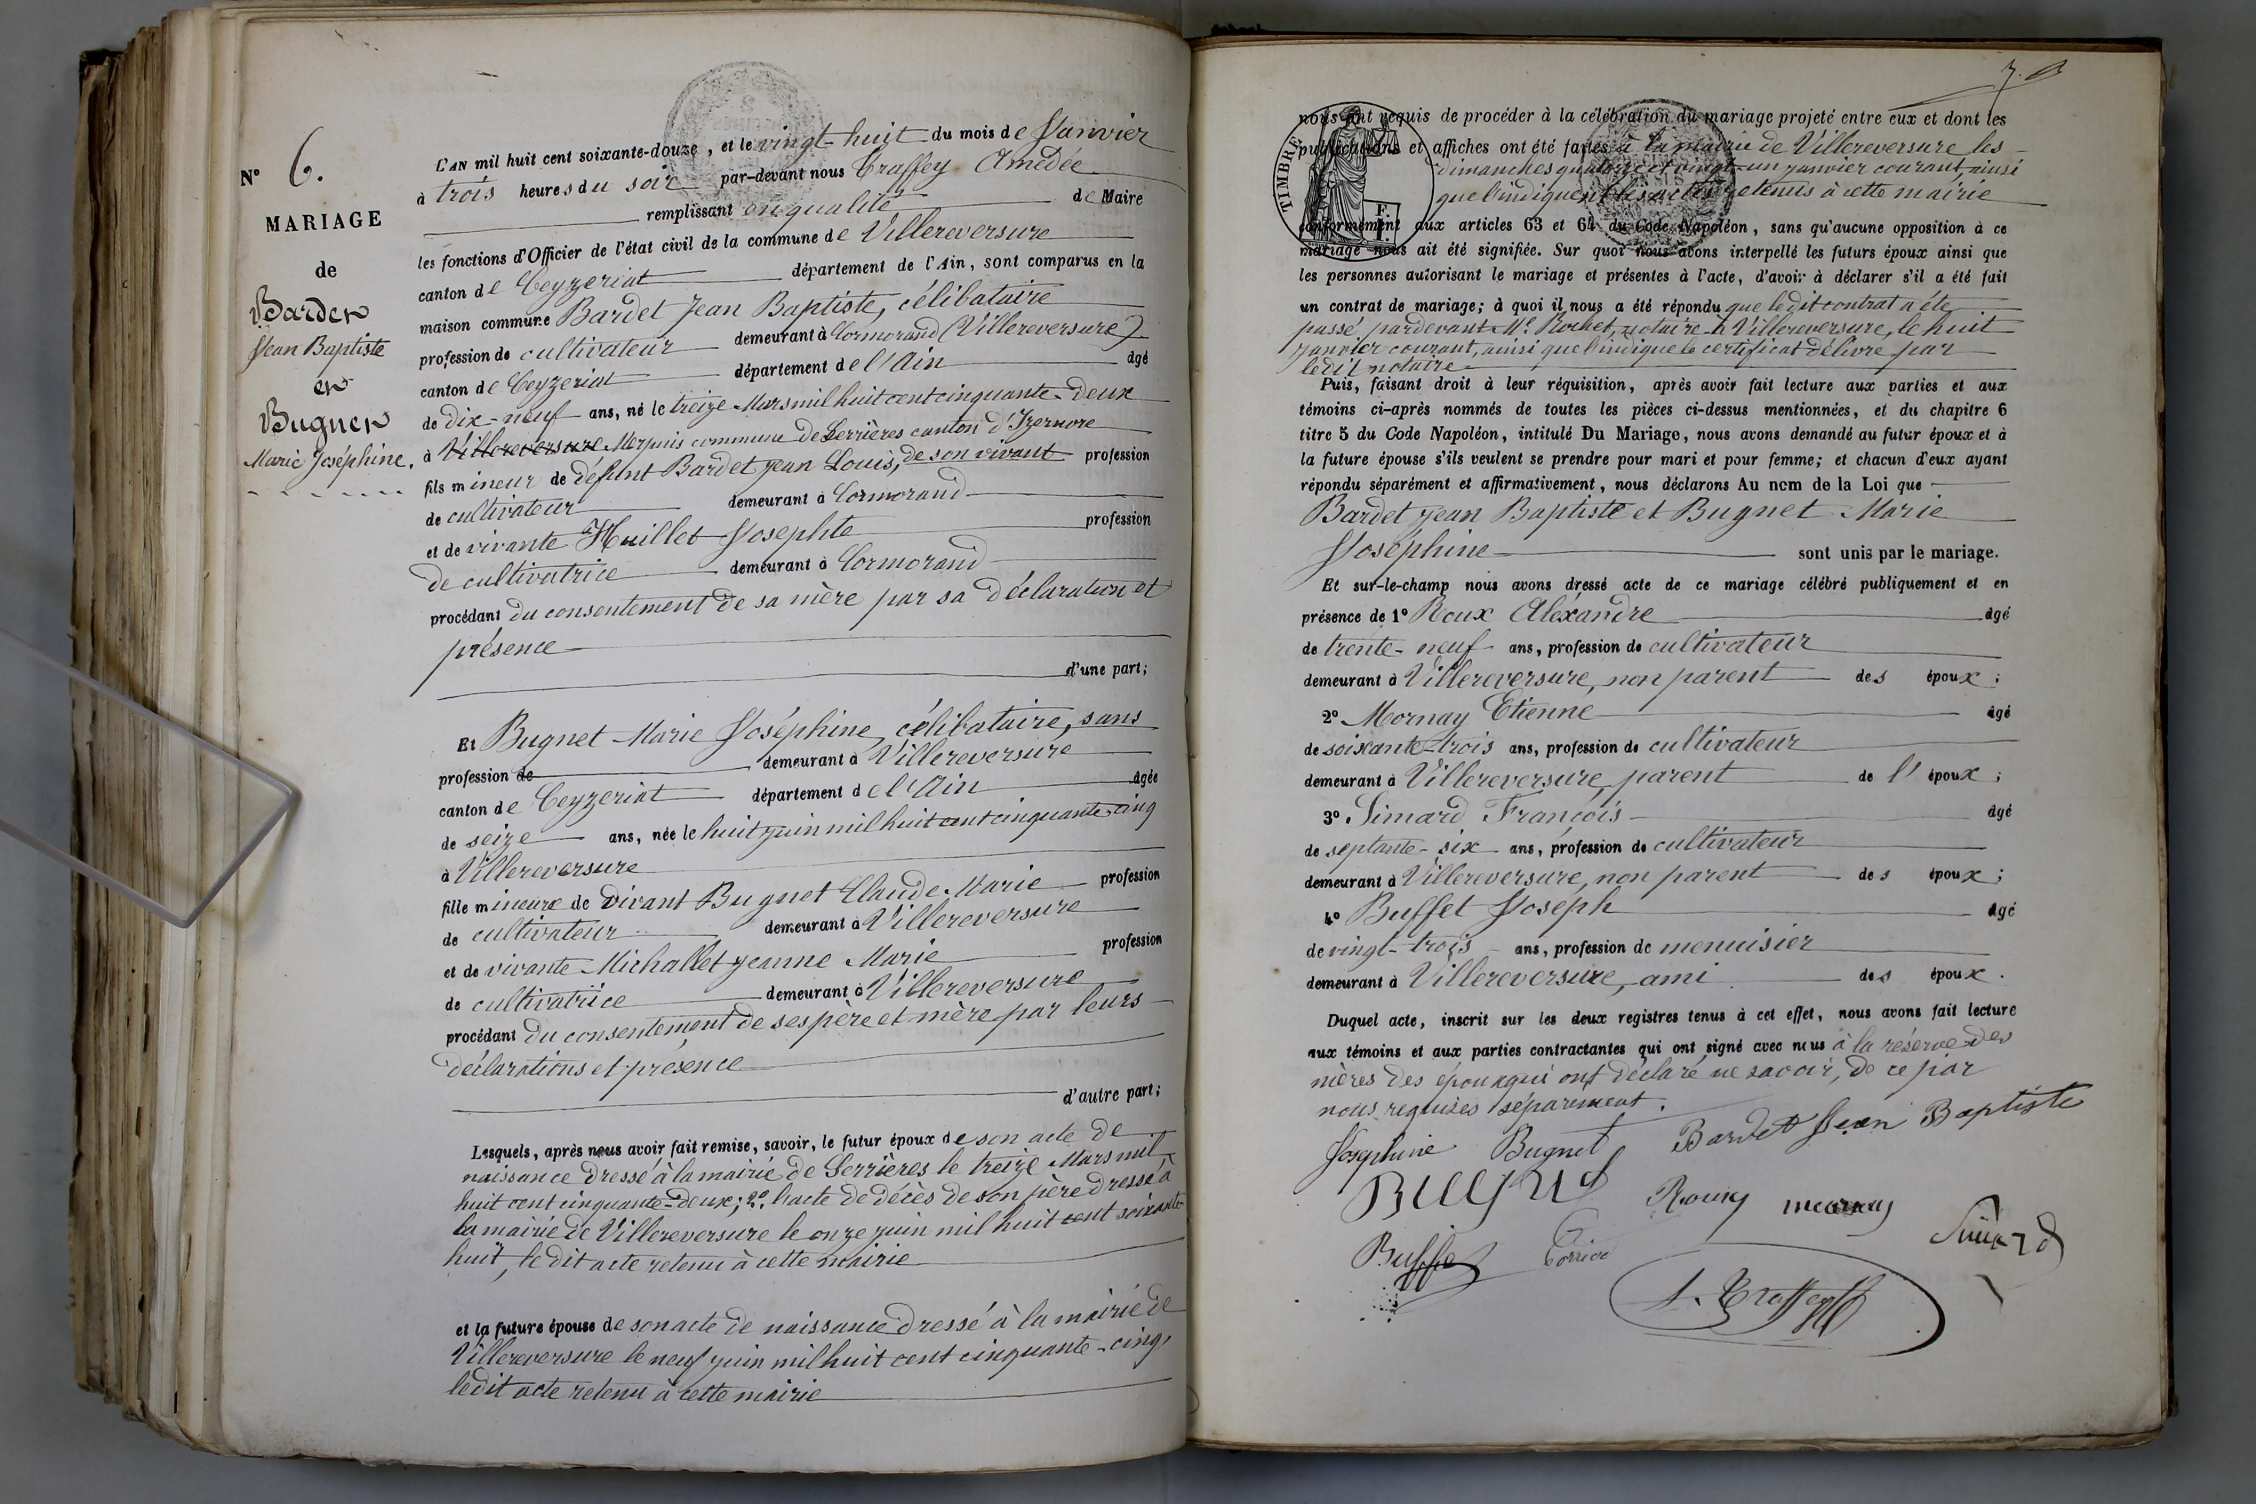 N° 6.
MARIAGE
de
Bardet
Jean Baptiste
et
Bugnet
Marie Joséphine.
L'AN mil huit cent soixante-douze, et le vingt-huit du mois de Janvier
à trois heures du soir par-devant nous Traffey Amédée
remplissant en qualité de Maire
les fonctions d'Officier de l'état civil de la commune de Villereversure
canton de Ceyzeriat département de l'Ain, sont comparus en la
maison commune Bardet Jean Baptiste, célibataire
profession de cultivateur demeurant à Cormorand (Villereversure)
canton de Ceyzeriat département de l'Ain âgé
de dix-neuf ans, né le treize Mars mil huit cent cinquante-deux
à Villereversure Merpuis commune de Serrières canton d'Izernore
fils mineur de défunt Bardet Jean Louis, de son vivant profession
de cultivateur demeurant à Cormorand
et de vivante Huillet Josephte profession
de cultivatrice demeurant à Cormorand
procédant du consentement de sa mère par sa déclaration et
présence
d'une part;
Et Bugnet Marie Joséphine, célibataire, sans
profession de demeurant à Villereversure
canton de Ceyzeriat département de l'Ain âgée
de seize ans, née le huit juin mil huit cent cinquante-cinq
à Villereversure
fille mineure de vivant Bugnet Claude Marie profession
de cultivateur demeurant à Villereversure
et de vivante Michallet Jeanne Marie profession
de cultivatrice demeurant à Villereversure
procédant du consentement de ses père et mère par leurs
déclarations et présence
d'autre part;
Lesquels, après nous avoir fait remise, savoir, le futur époux de son acte de
naissance dressé à la mairie de Serrières le treize Mars mil
huit cent cinquante-deux; 2° l'acte de décès de son père dressé à
la mairie de Villereversure le onze juin mil huit cent soixante-
huit, le dit acte retenu à cette mairie
et la future épouse de son acte de naissance dressé à la mairie de
Villereversure le neuf juin mil huit cent cinquante-cinq,
ledit acte retenu à cette mairie
TIMBRE
nous ont requis de procéder à la célébration du mariage projeté entre eux et dont les
publications et affiches ont été faites à la mairie de Villereversure les
dimanches quatorze et vingt-un janvier courant, ainsi
que l'indiquent les actes retenus à cette mairie
conformément aux articles 63 et 64 du Code Napoléon, sans qu'aucune opposition à ce
mariage nous ait été signifiée. Sur quoi nous avons interpellé les futurs époux ainsi que
les personnes autorisant le mariage et présentes à l'acte, d'avoir à déclarer s'il a été fait
un contrat de mariage; à quoi il nous a été répondu que ledit contrat a été
passé pardevant Me Rochet, notaire à Villereversure, le huit
janvier courant, ainsi que l'indique le certificat délivré par
ledit notaire
Puis, faisant droit à leur réquisition, après avoir fait lecture aux parties et aux
témoins ci-après nommés de toutes les pièces ci-dessus mentionnées, et du chapitre 6
titre 5 du Code Napoléon, intitulé Du Mariage, nous avons demandé au futur époux et à
la future épouse s'ils veulent se prendre pour mari et pour femme; et chacun d'eux ayant
répondu séparément et affirmativement, nous déclarons Au nom de la Loi que
Bardet Jean Baptiste et Bugnet Marie
Joséphine sont unis par le mariage.
Et sur-le-champ nous avons dressé acte de ce mariage célébré publiquement et en
présence de 1° Roux Alexandre âgé
de trente-neuf ans, profession de cultivateur
demeurant à Villereversure, non parent des époux;
2° Mornay Etienne âgé
de soixante-trois ans, profession de cultivateur
demeurant à Villereversure, parent de l' époux;
3° Simard François âgé
de septante-six ans, profession de cultivateur
demeurant à Villereversure, non parent des époux;
4° Buffet Joseph âgé
de vingt-trois ans, profession de menuisier
demeurant à Villereversure, ami des époux.
Duquel acte, inscrit sur les deux registres tenus à cet effet, nous avons fait lecture
aux témoins et aux parties contractantes qui ont signé avec nous à la réserve des
mères des époux qui ont déclaré ne savoir, de ce par
nous requises séparément.
Josephine Bugnet Bardet Jean Baptiste
Bugnet Roux mornay Simard
Buffet
A. Traffey